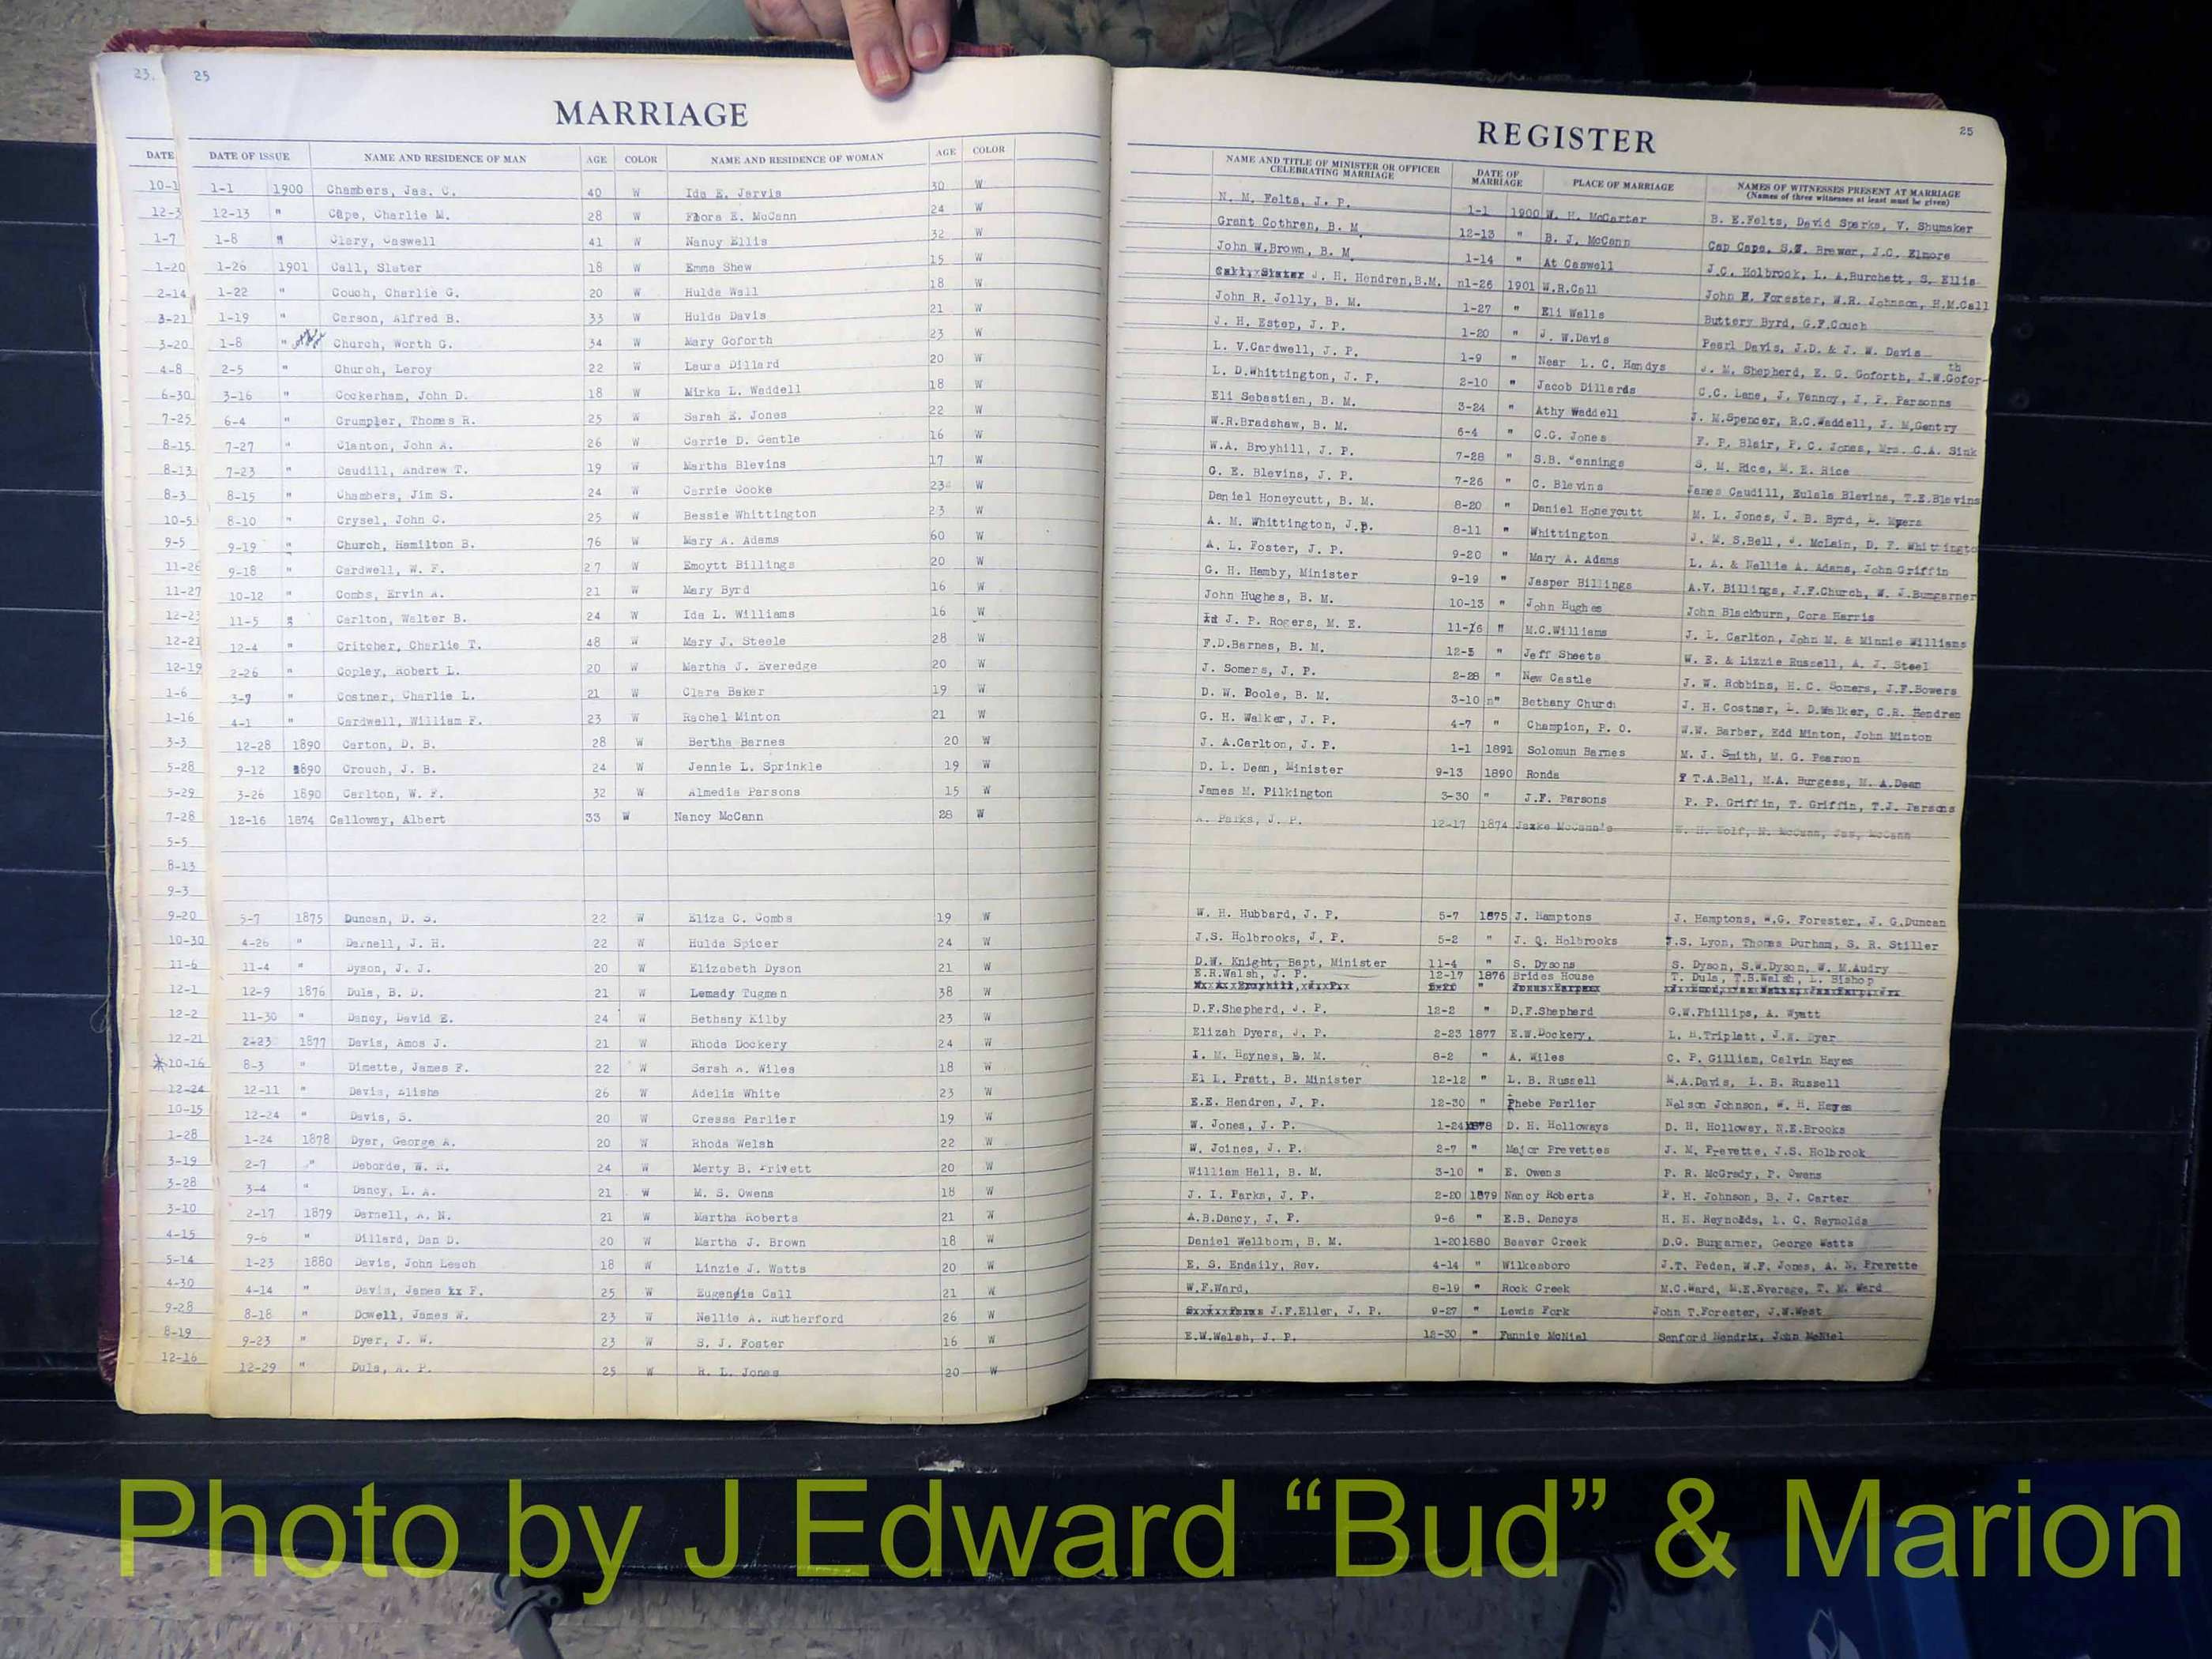 23. 25
MARRIAGE
DATE DATE OF ISSUE NAME AND RESIDENCE OF MAN AGE COLOR NAME AND RESIDENCE OF WOMAN AGE COLOR
10-1 1-1 1900 Chambers, Jas. C. 40 W Ida E. Jarvis 30 W
12-3 12-13 " Cape, Charlie M. 28 W Flora E. McCann 24 W
1-7 1-8 " Clary, Caswell 41 W Nancy Ellis 32 W
1-20 1-26 1901 Call, Slater 18 W Emma Shew 15 W
2-14 1-22 " Couch, Charlie G. 20 W Hulda Wall 18 W
3-21 1-19 " Carson, Alfred B. 33 W Hulda Davis 21 W
3-20 1-8 " Church, Worth G. 34 W Mary Goforth 23 W
4-8 2-5 " Church, Leroy 22 W Laura Dillard 20 W
6-30 3-16 " Cockerham, John D. 18 W Mirka L. Waddell 18 W
7-25 6-4 " Crumpler, Thomas R. 25 W Sarah E. Jones 22 W
8-15 7-27 " Clanton, John A. 26 W Carrie D. Gentle 16 W
8-13 7-23 " Caudill, Andrew T. 19 W Martha Blevins 17 W
8-3 8-15 " Chambers, Jim S. 24 W Carrie Cooke 23 W
10-5 8-10 " Crysel, John C. 25 W Bessie Whittington 23 W
9-5 9-19 " Church, Hamilton B. 76 W Mary A. Adams 60 W
11-26 9-18 " Cardwell, W. F. 27 W Emoytt Billings 20 W
11-27 10-12 " Combs, Ervin A. 21 W Mary Byrd 16 W
12-23 11-5 " Carlton, Walter B. 24 W Ida L. Williams 16 W
12-21 12-4 " Critcher, Charlie T. 48 W Mary J. Steele 28 W
12-19 2-26 " Copley, Robert L. 20 W Martha J. Everedge 20 W
1-6 3-9 " Costner, Charlie L. 21 W Clara Baker 19 W
1-16 4-1 " Cardwell, William F. 23 W Rachel Minton 21 W
3-3 12-28 1890 Carton, D. B. 28 W Bertha Barnes 20 W
5-28 9-12 1890 Crouch, J. B. 24 W Jennie L. Sprinkle 19 W
5-29 3-26 1890 Carlton, W. F. 32 W Almedia Parsons 15 W
7-28 12-16 1874 Calloway, Albert 33 W Nancy McCann 28 W
5-5
8-13
9-3
9-20 5-7 1875 Duncan, D. S. 22 W Eliza C. Combs 19 W
10-30 4-26 " Darnell, J. H. 22 W Hulda Spicer 24 W
11-6 11-4 " Dyson, J. J. 20 W Elizabeth Dyson 21 W
12-1 12-9 1876 Dula, B. D. 21 W Lemady Tugman 38 W
12-2 11-30 " Dancy, David E. 24 W Bethany Kilby 23 W
12-21 2-23 1877 Davis, Amos J. 21 W Rhoda Dockery 24 W
*10-16 8-3 " Dimette, James F. 22 W Sarah A. Wiles 18 W
12-24 12-11 " Davis, Elisha 26 W Adelia White 23 W
10-15 12-24 " Davis, S. 20 W Cressa Parlier 19 W
1-28 1-24 1878 Dyer, George A. 20 W Rhoda Welsh 22 W
3-19 2-7 " Deborde, W. 24 W Merty B. Privett 20 W
3-28 3-4 " Dancy, L. A. 21 W M. S. Owens 18 W
3-10 2-17 1879 Darnell, A. N. 21 W Martha Roberts 21 W
4-15 9-6 " Dillard, Dan D. 20 W Martha J. Brown 18 W
5-14 1-23 1880 Davis, John Leach 18 W Linzie J. Watts 20 W
4-30 4-14 " Davis, James F. 25 W Eugenia Call 21 W
9-28 8-18 " Dowell, James W. 23 W Nellie A. Rutherford 26 W
8-19 9-23 " Dyer, J. W. 23 W S. J. Foster 16 W
12-16 12-29 " Dula, A. P. 25 W R. L. Jones 20 W
25
REGISTER
NAME AND TITLE OF MINISTER OR OFFICER CELEBRATING MARRIAGE DATE OF MARRIAGE PLACE OF MARRIAGE NAMES OF WITNESSES PRESENT AT MARRIAGE
(Names of three witnesses at least must be given)
N. M. Felts, J. P. 1-1 1900 W. H. McCarter B. E.Felts, David Sparks, V. Shumaker
Grant Cothren, B. M. 12-13 " B. J. McCann Cap Cape, S.W. Brewer, J.C. Elmore
John W.Brown, B. M. 1-14 " At Caswell J.C. Holbrook, L. A.Burchett, S. Ellis
J. H. Hendren,B.M. n1-26 1901 W.R.Call John E. Forester, W.R. Johnson, H.M.Call
John R. Jolly, B. M. 1-27 " Eli Wells Buttery Byrd, G.F.Couch
J. H. Estep, J. P. 1-20 " J. W.Davis Pearl Davis, J.D. & J. W. Davis
L. V.Cardwell, J. P. 1-9 " Near L. C. Handys J. M. Shepherd, E. G. Goforth, J.W.Gofor-th
L. D.Whittington, J. P. 2-10 " Jacob Dillards C.C. Lane, J. Vannoy, J. P. Parsonns
Eli Sebastian, B. M. 3-24 " Athy Waddell J. M.Spencer, R.C.Waddell, J. M.Gentry
W.R.Bradshaw, B. M. 6-4 " C.G. Jones F. P. Blair, P. C. Jones, Mrs. C.A. Sink
W.A. Broyhill, J. P. 7-28 " S.B. Jennings S. M. Rice, M. E. Rice
G. E. Blevins, J. P. 7-26 " C. Blevins James Caudill, Eulala Blevins, T.E.Blevins
Daniel Honeycutt, B. M. 8-20 " Daniel Honeycutt M. L. Jones, J. B. Byrd, L. Myers
A. M. Whittington, J.P. 8-11 " Whittington J. M. S.Bell, J. McLain, D. F. Whittingto
A. L. Foster, J. P. 9-20 " Mary A. Adams L. A. & Nellie A. Adams, John Griffin
G. H. Hamby, Minister 9-19 " Jasper Billings A.V. Billings, J.F.Church, W. J.Bumgarner
John Hughes, B. M. 10-13 " John Hughes John Blackburn, Cora Harris
J. P. Rogers, M. E. 11-16 " M.C.Williams J. L. Carlton, John M. & Minnie Williams
F.D.Barnes, B. M. 12-5 " Jeff Sheets W. E. & Lizzie Russell, A. J. Steel
J. Somers, J. P. 2-28 " New Castle J. W. Robbins, H. C. Somers, J.F.Bowers
D. W. Poole, B. M. 3-10 n" Bethany Church J. H. Costner, L. D.Walker, C.R. Hendren
G. H. Walker, J. P. 4-7 " Champion, P. O. W.W. Barber, Edd Minton, John Minton
J. A.Carlton, J. P. 1-1 1891 Solomun Barnes M. J. Smith, M. G. Pearson
D. L. Dean, Minister 9-13 1890 Ronda T.A.Bell, M.A. Burgess, M. A.Dean
James M. Pilkington 3-30 " J.F. Parsons P. P. Griffin, T. Griffin, T.J. Parsons
A. Parks, J. P. 12-17 1874 Jaxke McCann's W. H. Wolf, N. McCann, Jas, McCann
W. H. Hubbard, J. P. 5-7 1875 J. Hamptons J. Hamptons, W.G. Forester, J. G.Duncan
J.S. Holbrooks, J. P. 5-2 " J. Q. Holbrooks J.S. Lyon, Thomas Durham, S. R. Stiller
D.W. Knight, Bapt, Minister 11-4 " S. Dysons S. Dyson, S.W.Dyson, W. M.Audry
E.R.Walsh, J. P. 12-17 1876 Brides House T. Dula, T.B.Walsh, L. Bishop
D.F.Shepherd, J. P. 12-2 " D.F.Shepherd G.W.Phillips, A. Wyatt
Elizah Dyers, J. P. 2-23 1877 E.W.Dockery, L. H.Triplett, J.W. Dyer
I. M. Haynes, B. M. 8-2 " A. Wiles C. P. Gilliam, Calvin Hayes
El L. Pratt, B. Minister 12-12 " L. B. Russell M.A.Davis, L. B. Russell
E.E. Hendren, J. P. 12-30 " Phebe Parlier Nelson Johnson, W. H. Hayes
W. Jones, J. P. 1-24 1878 D. H. Holloways D. H. Holloway, N.E.Brooks
W. Joines, J. P. 2-7 " Major Prevettes J. M. Prevette, J.S. Holbrook
William Hall, B. M. 3-10 " E. Owens P. R. McGrady, P. Owens
J. I. Parks, J. P. 2-20 1879 Nancy Roberts F. H. Johnson, B. J. Carter
A.B.Dancy, J. P. 9-6 " E.B. Dancys H. H. Reynolds, L. C. Reynolds
Daniel Wellborn, B. M. 1-20 1880 Beaver Creek D.G. Bumgarner, George Watts
E. S. Endaily, Rev. 4-14 " Wilkesboro J.T. Peden, W.F. Jones, A. N. Prevette
W.F.Ward, 8-19 " Rock Creek M.C.Ward, M.E.Everage, T. M. Ward
J.F.Eller, J. P. 9-27 " Lewis Fork John T.Forester, J.W.West
E.W.Walsh, J. P. 12-30 " Fannie McNiel Sanford Hendrix, John McNiel
Photo by J Edward “Bud” & Marion